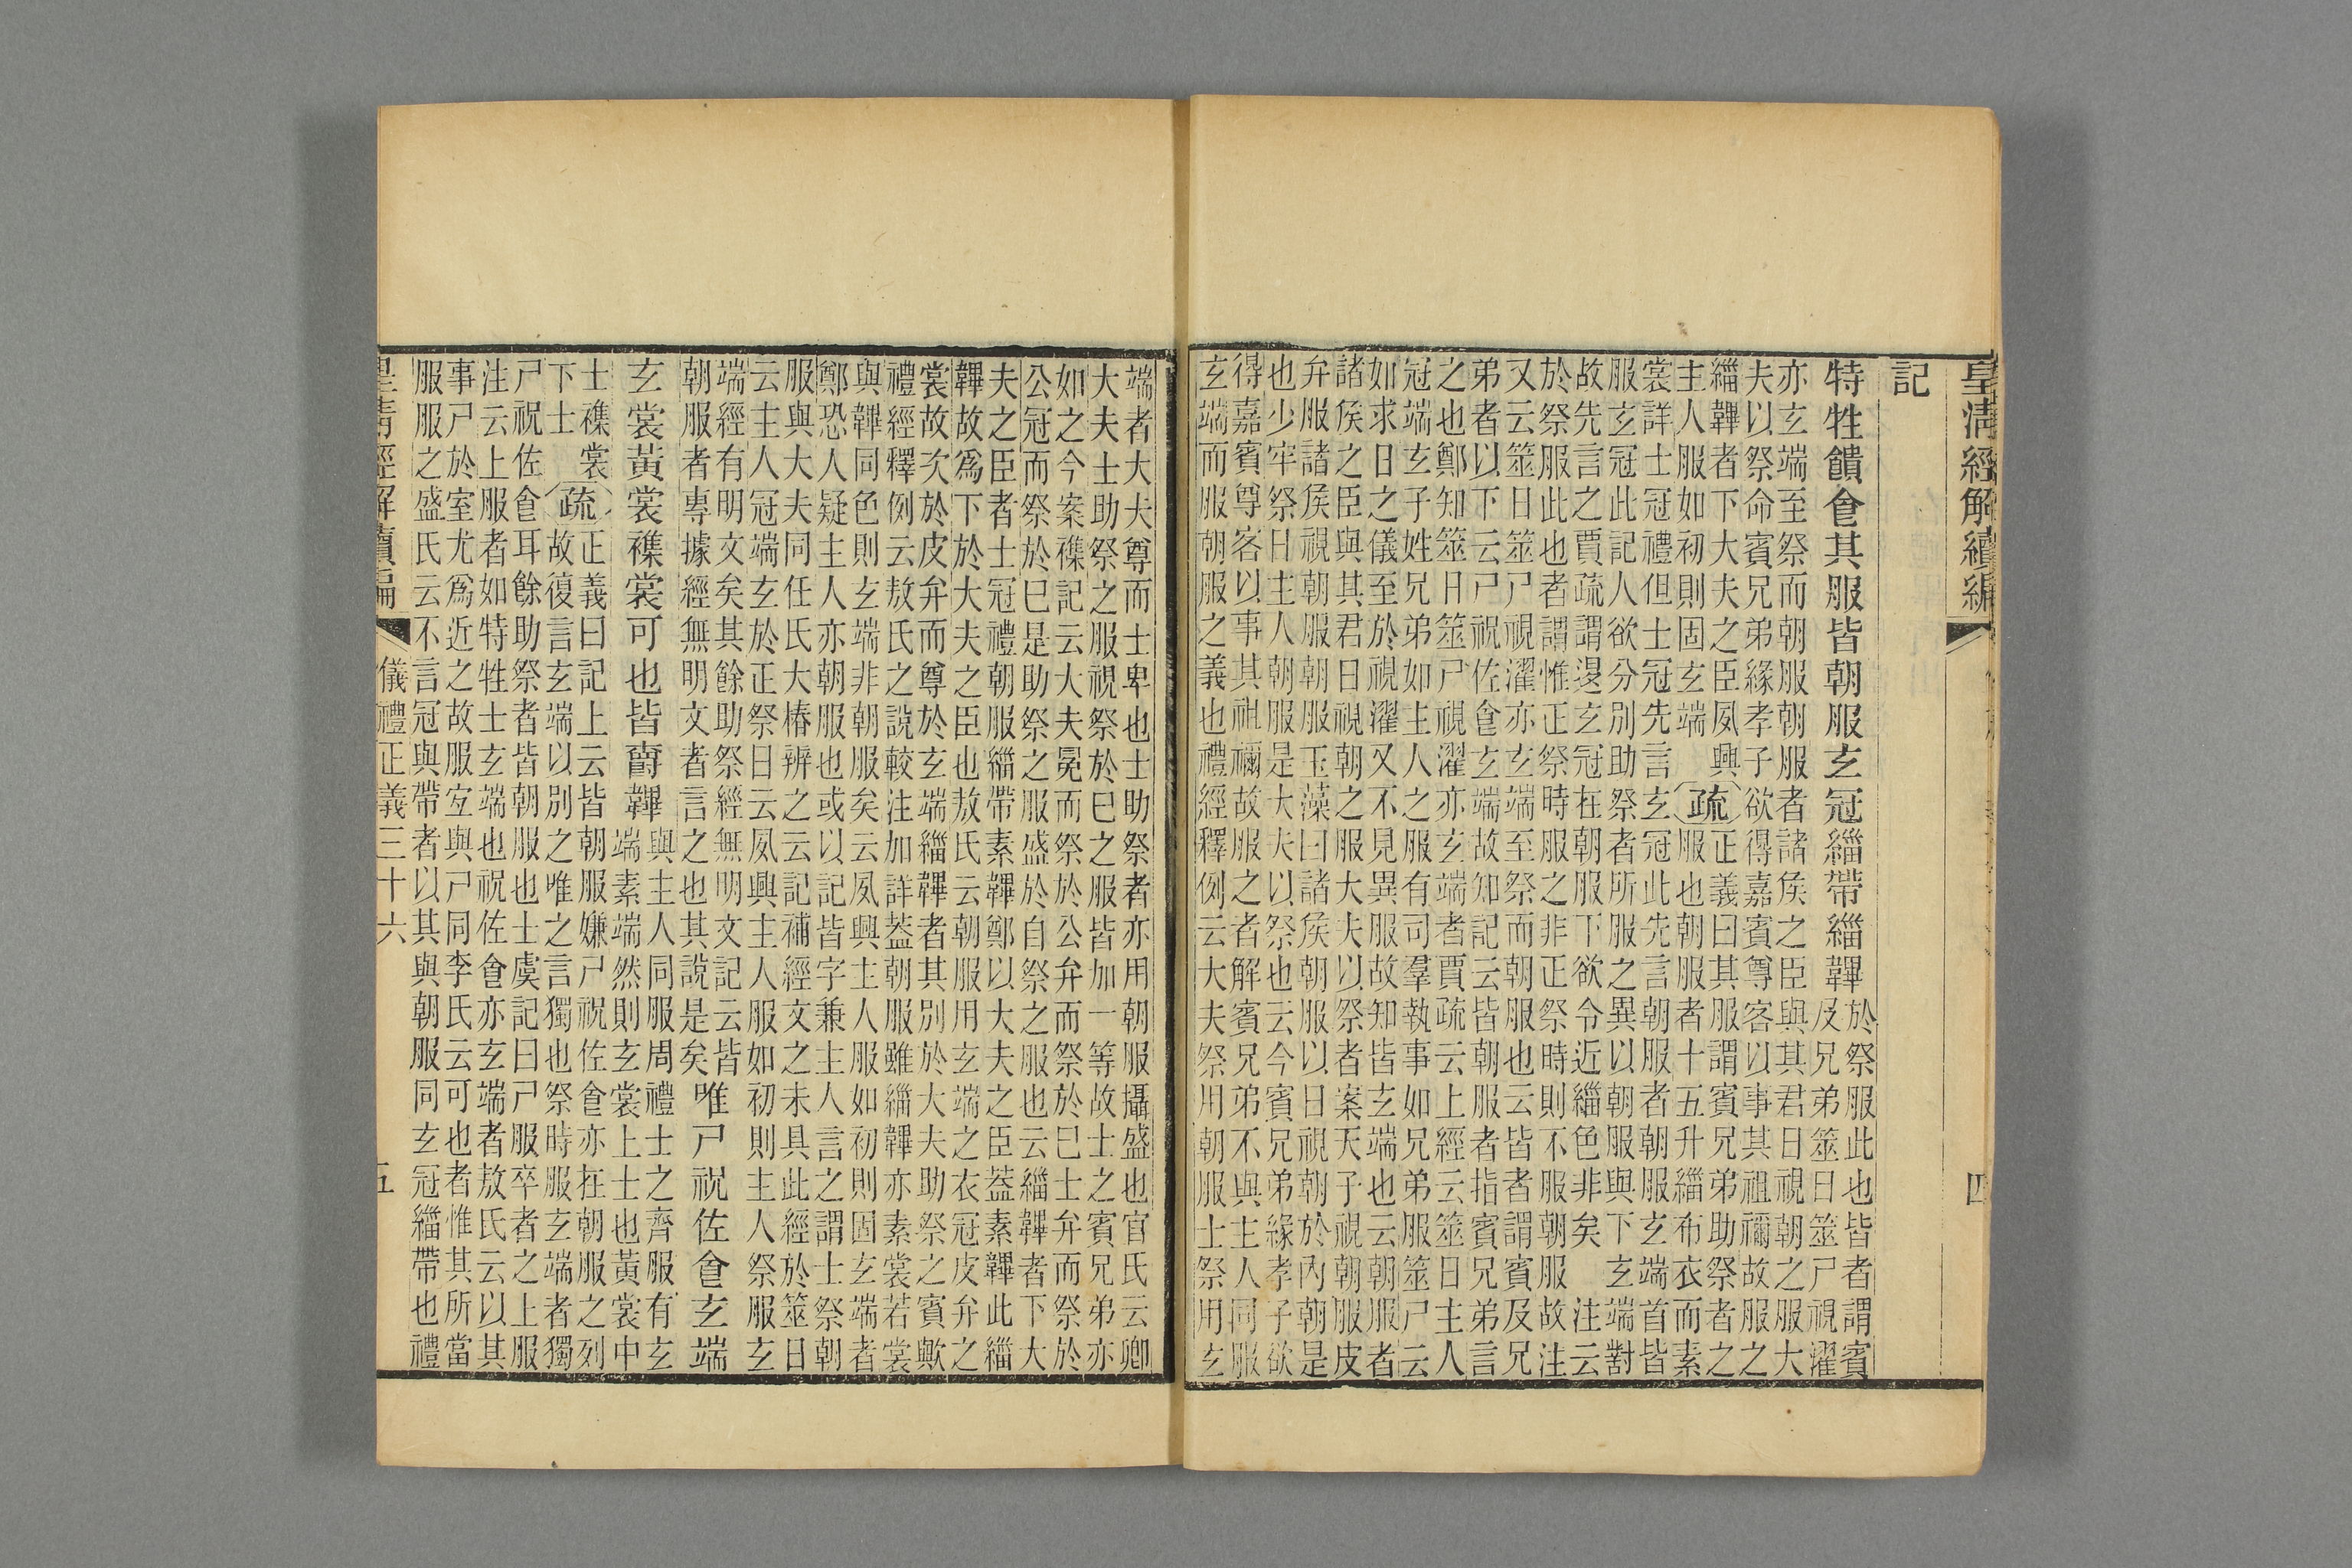 皇清經解續編 四
記
特牲饋食其服皆朝服玄冠緇帶緇韠
於祭服此也皆者謂賓
及兄弟筮日筮尸視濯
亦玄端至祭而朝服朝服者諸侯之臣與其君日視朝之服大
夫以祭命賓兄弟緣孝子欲得嘉賓尊客以事其祖禰故服之
緇韠者下大夫之臣夙興
主人服如初則固玄端
疏
正義曰其服謂賓兄弟助祭者之
服也朝服者十五升緇布衣而素
裳詳士冠禮但士冠先言玄冠此先言朝服者朝服玄端首皆
服玄冠此記人欲分別助祭者所服之異以朝服與下玄端對
故先言之賈疏謂退玄冠在朝服下欲令近緇色非矣 注云
於祭服此也者謂惟正祭時服之非正祭時則不服朝服故注
又云筮日筮尸視濯亦玄端至祭而朝服也云皆者謂賓及兄
弟者以下云尸祝佐食玄端故知記云皆朝服者指賓兄弟言
之也鄭知筮日筮尸視濯亦玄端者賈疏云上經云筮日主人
冠端玄子姓兄弟如主人之服有司羣執事如兄弟服筮尸云
如求日之儀至於視濯又不見異服故知皆玄端也云朝服者
諸侯之臣與其君日視朝之服大夫以祭者案天子視朝服皮
弁服諸侯視朝服朝服玉藻曰諸侯朝服以日視朝於內朝是
也少牢祭日主人朝服是大夫以祭也云今賓兄弟緣孝子欲
得嘉賓尊客以事其祖禰故服之者解賓兄弟不與主人同服
玄端而服朝服之義也禮經釋例云大夫祭用朝服士祭用玄
端者大夫尊而士卑也士助祭者亦用朝服攝盛也官氏云卿
大夫士助祭之服視祭於已之服皆加一等故士之賓兄弟亦
如之今案襍記云大夫冕而祭於公弁而祭於已士弁而祭於
公冠而祭於已是助祭之服盛於自祭之服也云緇韠者下大
夫之臣者士冠禮朝服緇帶素韠鄭以大夫之臣蓋素韠此緇
韠故爲下於大夫之臣也敖氏云朝服用玄端之衣冠皮弁之
裳故次於皮弁而尊於玄端緇韠者其別於大夫助祭之賓歟
禮經釋例云敖氏之說較注加詳蓋朝服雖緇韠亦素裳若裳
與韠同色則玄端非朝服矣云夙興主人服如初則固玄端者
鄭恐人疑主人亦朝服也或以記皆字兼主人言之謂士祭朝
服與大夫同任氏大椿辨之云記補經文之未具此經於筮日
云主人冠端玄於正祭日云夙興主人服如初則主人祭服玄
端經有明文矣其餘助祭經無明文記云皆
朝服者專據經無明文者言之也其說是矣
唯尸祝佐食玄端
玄裳黃裳襍裳可也皆爵韠
與主人同服周禮士之齊服有玄
端素端然則玄裳上士也黃裳中
士襍裳
下士
疏
正義曰記上云皆朝服嫌尸祝佐食亦在朝服之列
故復言玄端以別之唯之言獨也祭時服玄端者獨
尸祝佐食耳餘助祭者皆朝服也士虞記曰尸服卒者之上服
注云上服者如特牲士玄端也祝佐食亦玄端者敖氏云以其
事尸於室尤爲近之故服宜與尸同李氏云可也者惟其所當
服服之盛氏云不言冠與帶者以其與朝服同玄冠緇帶也禮
皇清經解續編 儀禮正義三十六 五